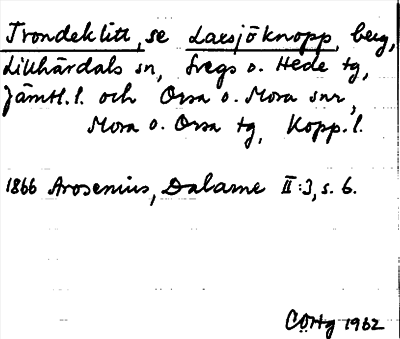 Trondeklitt, se Larsjöknopp, berg,
Lillhärdals sn, Svegs o. Hede tg,
Jämtl. l. och Orsa o. Mora snr,
Mora o. Orsa tg, Kopp. l.
1866 Arosenius, Dalarne II:3, s. 6.
COHg 1962